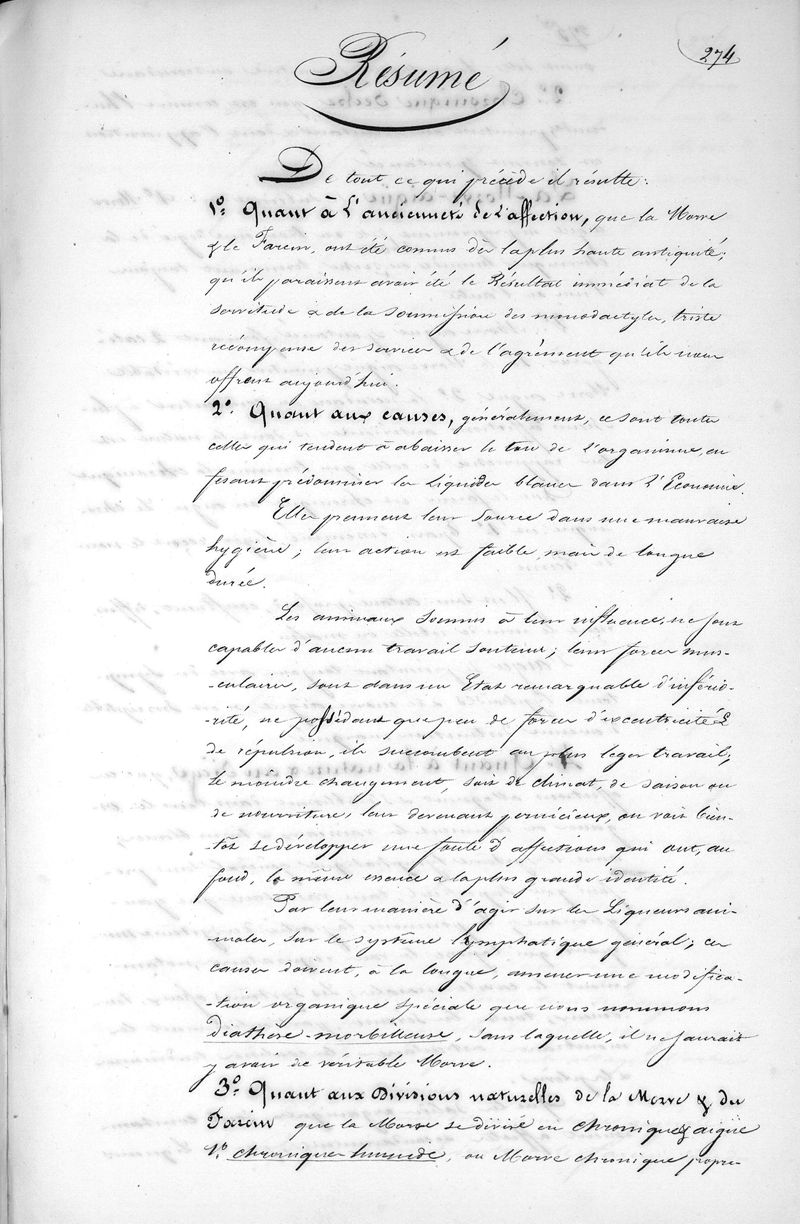 274
Résumé
De tout ce qui précède il résulte:
1º. Quant à l'ancienneté de l'affection, que la Morve
& le Farcin, ont été connus dès la plus haute antiquité;
qu'ils paraissent avoir été le Résultat immédiat de la
servitude & de la soumission des monodactyles, triste
récompense des services & de l'agrément qu'ils nous
offrent aujourd'hui.
2º. Quant aux causes, généralement, ce sont toutes
celles qui tendent à abaisser le ton de l'organisme, en
fesant prédominer les Liquides blancs dans l'Economie.
Elles prennent leur source dans une mauvaise
hygiène; leur action est faible, mais de longue
durée.
Les animaux soumis à leur influence, ne sont
capables d'aucun travail soutenu; leurs forces mus-
-culaires, sont dans un Etat remarquable d'infério-
-rité, ne possédant que peu de forces d'excentricité &
de répulsion, ils succombent au plus leger travail;
le moindre changement, soit de climat, de saison ou
de nourriture, leur devenant pernicieux, on voit bien-
-tôt se développer une foule d'affections qui ont, au
fond, la même essence & la plus grande identité.
Par leur manière d'agir sur les Liqueurs ani-
-males, sur le système lymphatique général; ces
causes doivent, à la longue, amener une modifica-
-tion organique spéciale que nous nommons
diathèse-morbilleuse, sans laquelle, il ne saurait
y avoir de véritable Morve.
3º. Quant aux Divisions naturelles de la Morve & du
Farcin que la Morve se divise en chronique & aigüe
1º. chronique-humide, ou Morve chronique propre-